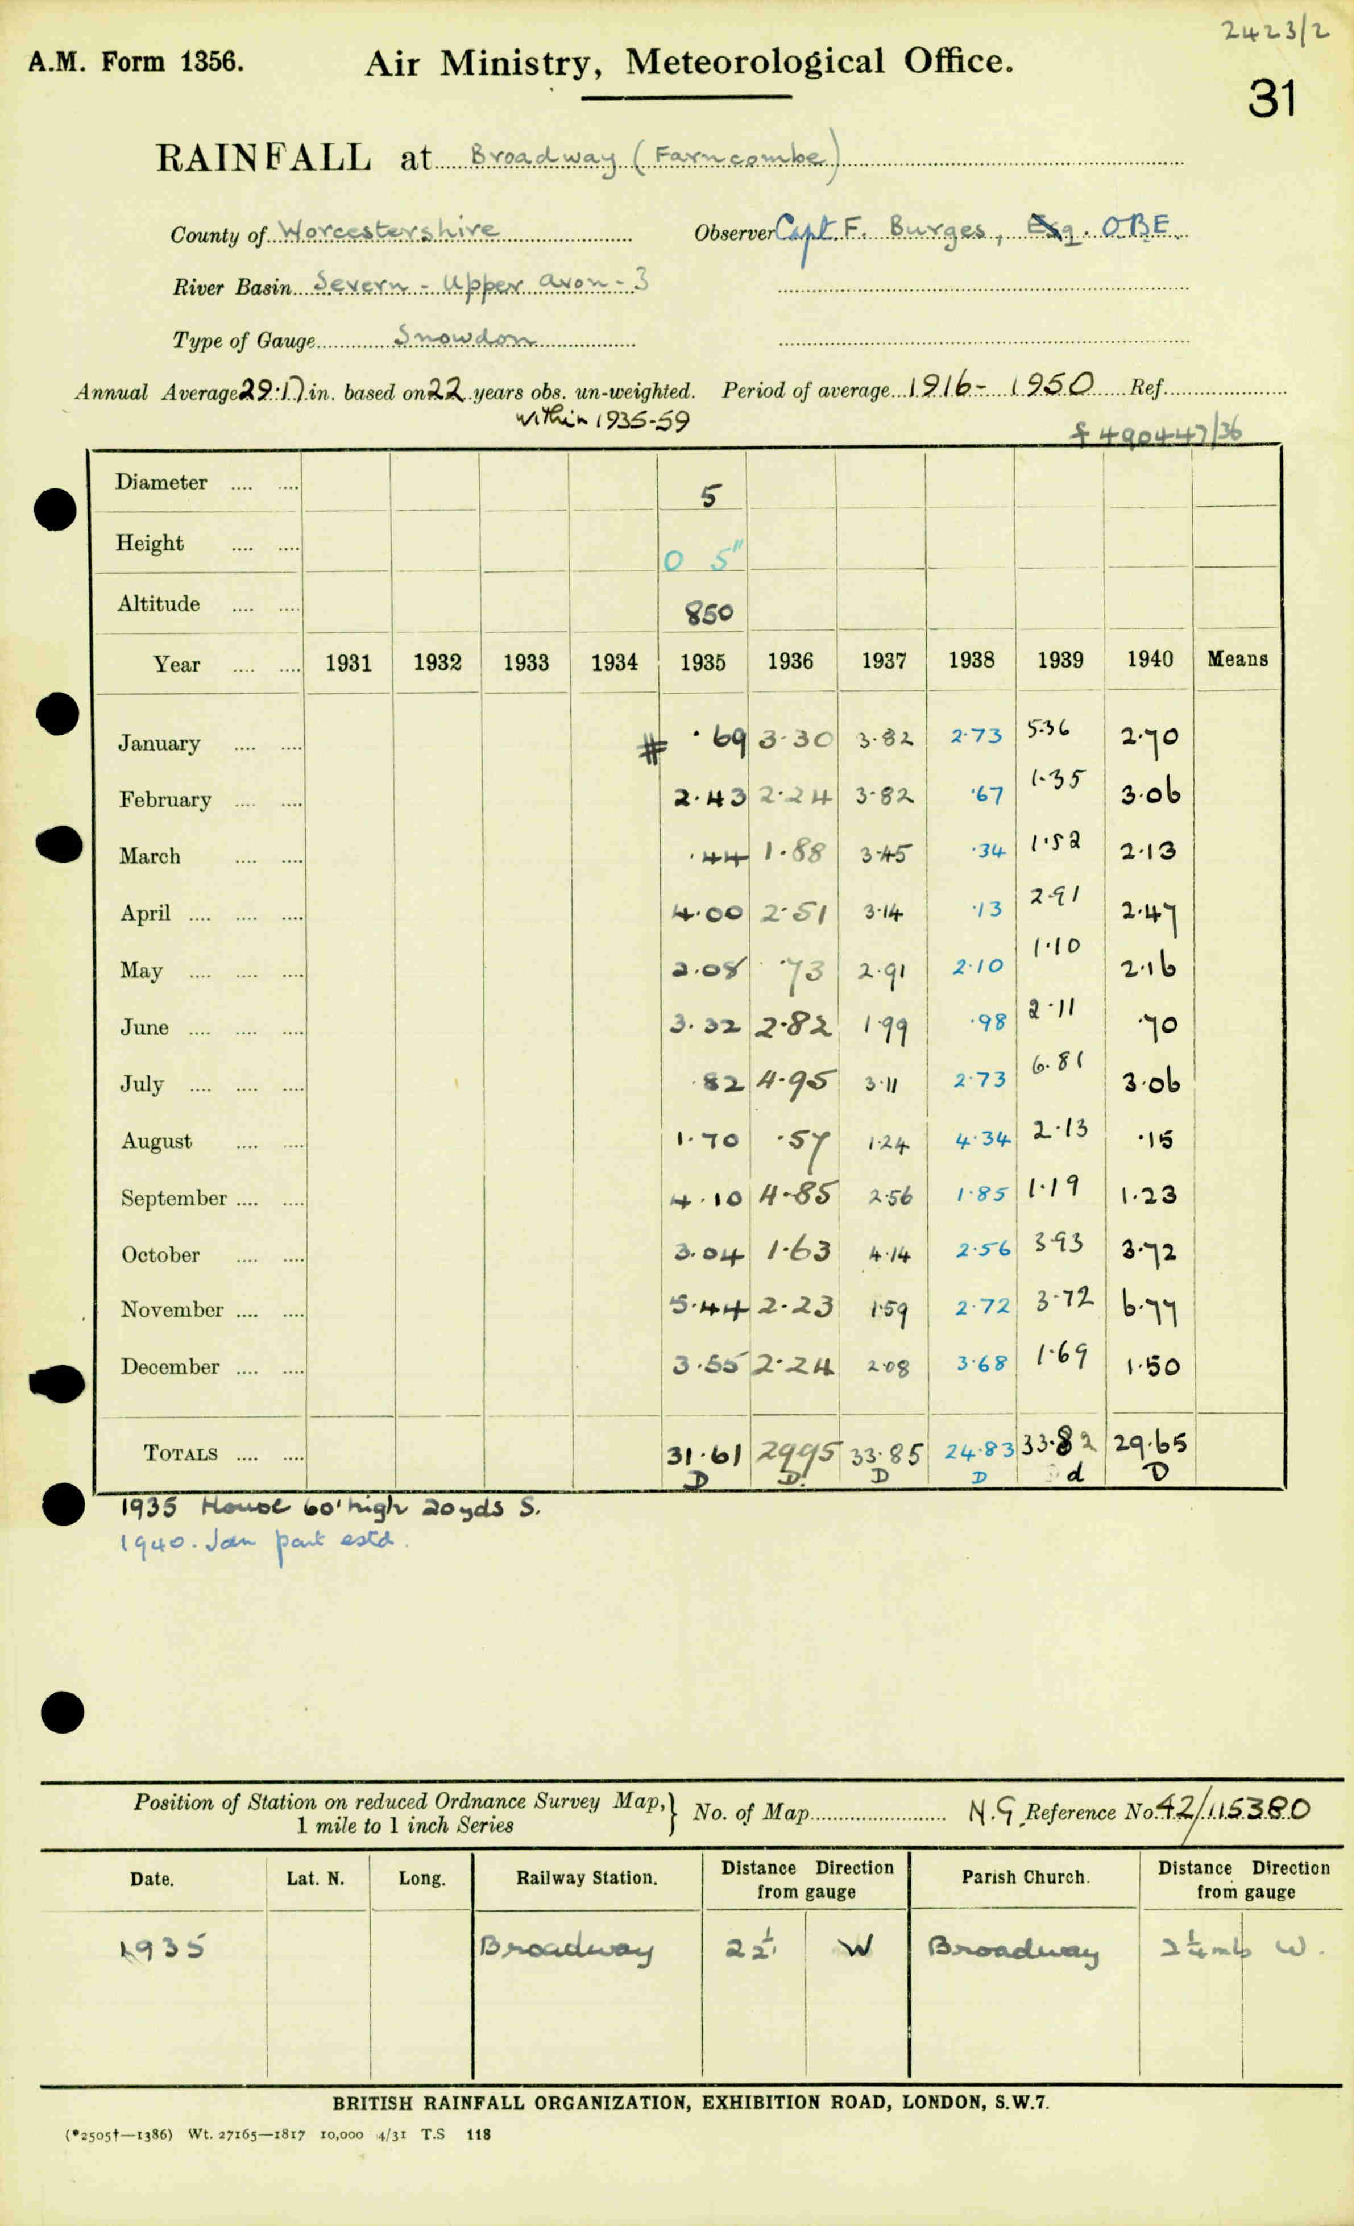 2423/2
A.M. Form 1356. Air Ministry, Meteorological Office.
31
RAINFALL at Broadway (Farncombe)
County of Worcestershire Observer Capt. F. Burges, Esq. OBE.
River Basin Severn - Upper Avon - 3
Type of Gauge Snowdon
Annual Average 29.17 in. based on 22 years obs. un-weighted. Period of average 1916 - 1950 Ref.
within 1935-59
£ 490447/36
Diameter .... .... 5
Height .... .... 0 5"
Altitude .... .... 850
Year .... .... 1931 1932 1933 1934 1935 1936 1937 1938 1939 1940 Means
January .... .... # .69 3.30 3.82 2.73 5.36 2.70
February .... .... 2.43 2.24 3.82 .67 1.35 3.06
March .... .... .44 1.88 3.45 .34 1.52 2.13
April .... .... .... 4.00 2.51 3.14 .13 2.91 2.47
May .... .... .... 2.08 .73 2.91 2.10 1.10 2.16
June .... .... .... 3.32 2.82 1.99 .98 2.11 .70
July .... .... .... .82 4.95 3.11 2.73 6.81 3.06
August .... .... 1.70 .57 1.24 4.34 2.13 .15
September .... .... 4.10 4.85 2.56 1.85 1.19 1.23
October .... .... 3.04 1.63 4.14 2.56 3.93 3.72
November .... .... 5.44 2.23 1.59 2.72 3.72 6.77
December .... .... 3.55 2.24 2.08 3.68 1.69 1.50
TOTALS .... .... 31.61 29.95 33.85 24.83 33.82 29.65
D D. D D d D
1935 House 60' high 20yds S.
1940. Jan part estd.
Position of Station on reduced Ordnance Survey Map, } No. of Map N.G. Reference No. 42/115380
1 mile to 1 inch Series
Date. Lat. N. Long. Railway Station. Distance Direction from gauge Parish Church. Distance Direction from gauge
1935 Broadway 2½ W Broadway 2¼ mls W.
BRITISH RAINFALL ORGANIZATION, EXHIBITION ROAD, LONDON, S.W.7.
(*2505†—1386) Wt. 27165—1817 10,000 4/31 T.S 118